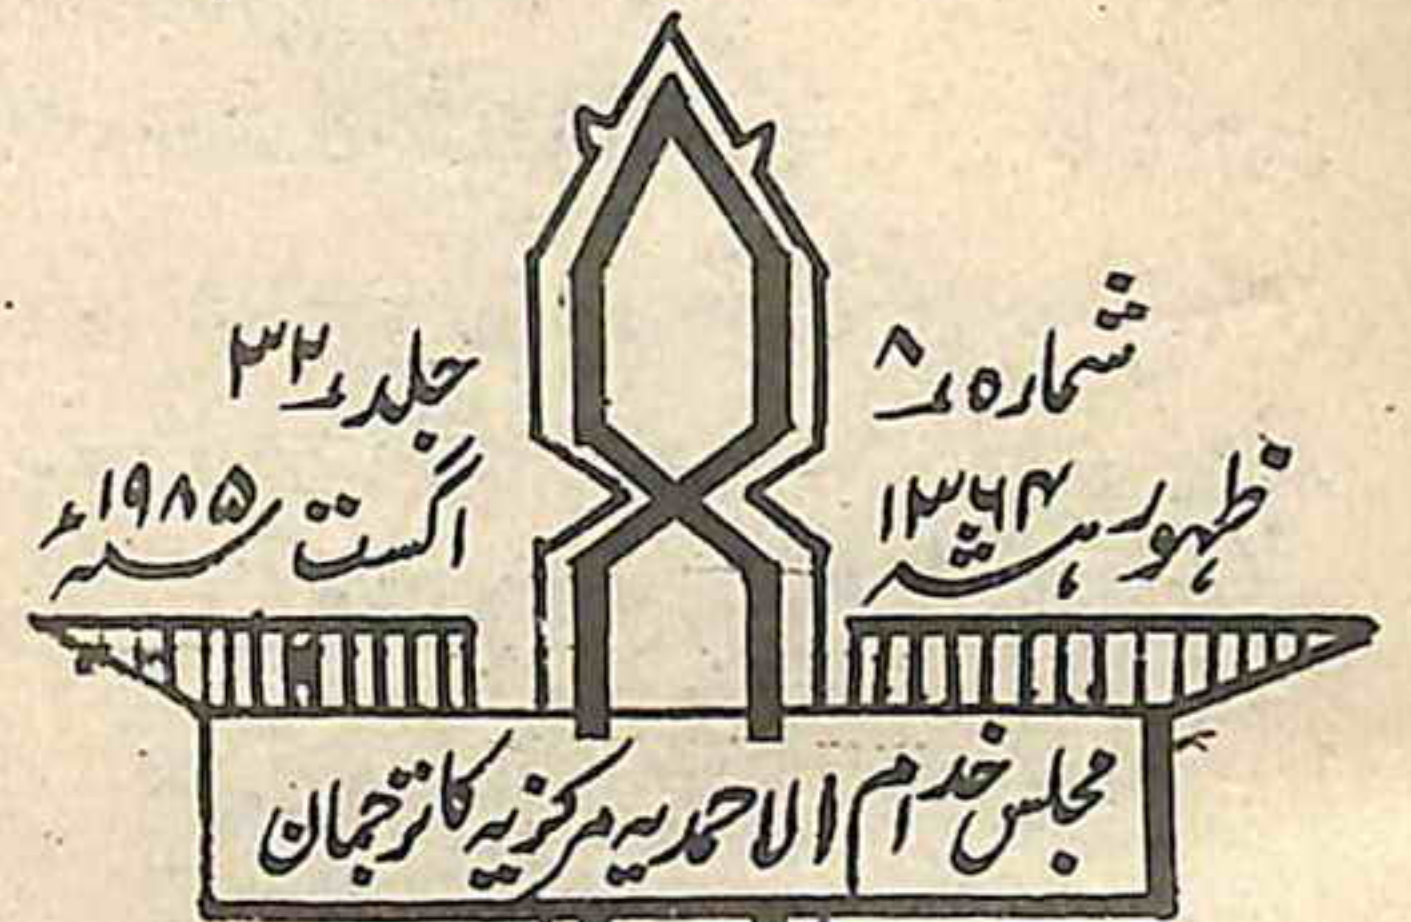 شمارہ ۸
جلد ۳۲
ظہور ۱۳۶۴ ہش
اگست ۱۹۸۵ء
مجلس خدام الاحمدیہ مرکزیہ کا ترجمان